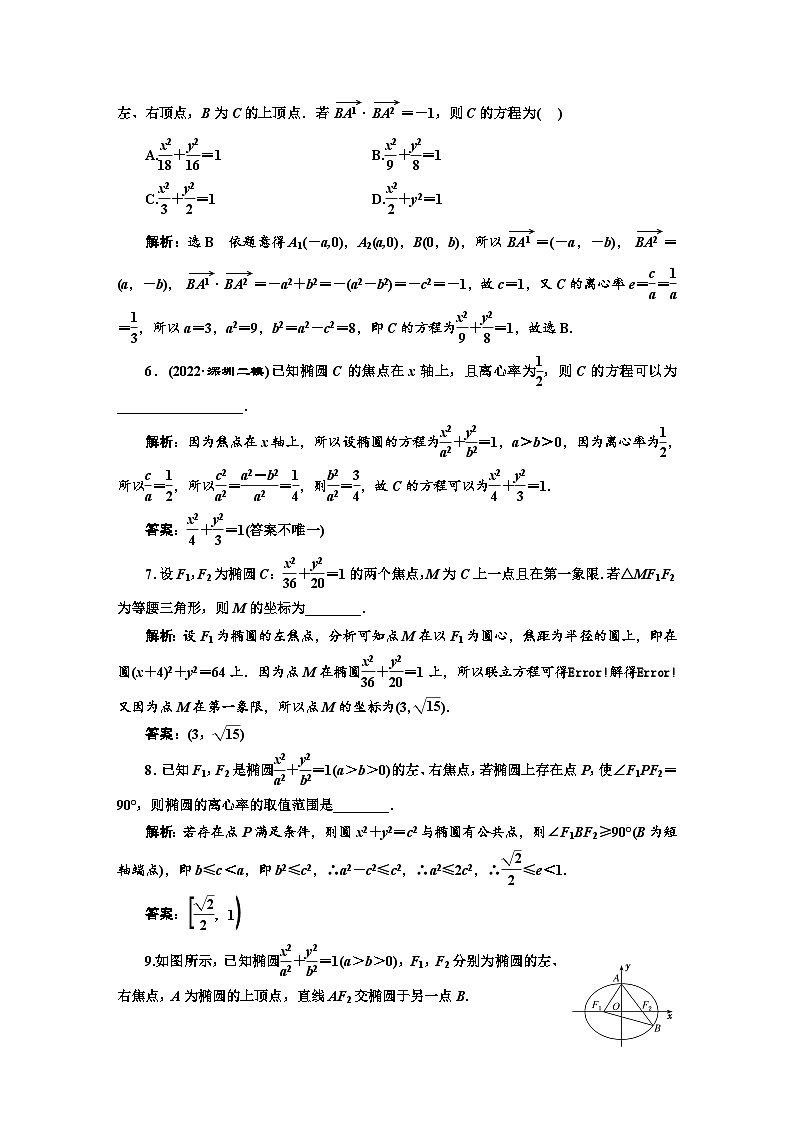 左、右顶点，B 为 C 的上顶点．若 $\overrightarrow{BA^1}$·$\overrightarrow{BA^2}$＝－1，则 C 的方程为(　)
A.$\frac{x^2}{18}$＋$\frac{y^2}{16}$＝1　　B.$\frac{x^2}{9}$＋$\frac{y^2}{8}$＝1
C.$\frac{x^2}{3}$＋$\frac{y^2}{2}$＝1　　D.$\frac{x^2}{2}$＋y²＝1
解析：选 B　依题意得 A₁(－a,0)，A₂(a,0)，B(0，b)，所以 $\overrightarrow{BA^1}$＝(－a，－b)，$\overrightarrow{BA^2}$＝
(a，－b)，$\overrightarrow{BA^1}$·$\overrightarrow{BA^2}$＝－a²＋b²＝－(a²－b²)＝－c²＝－1，故 c＝1，又 C 的离心率 e＝$\frac{c}{a}$＝$\frac{1}{a}$
＝$\frac{1}{3}$，所以 a＝3，a²＝9，b²＝a²－c²＝8，即 C 的方程为$\frac{x^2}{9}$＋$\frac{y^2}{8}$＝1，故选 B.
6．(2022·深圳二模)已知椭圆 C 的焦点在 x 轴上，且离心率为$\frac{1}{2}$，则 C 的方程可以为
________________．
解析：因为焦点在 x 轴上，所以设椭圆的方程为$\frac{x^2}{a^2}$＋$\frac{y^2}{b^2}$＝1，a＞b＞0，因为离心率为$\frac{1}{2}$，
所以$\frac{c}{a}$＝$\frac{1}{2}$，所以$\frac{c^2}{a^2}$＝$\frac{a^2－b^2}{a^2}$＝$\frac{1}{4}$，则$\frac{b^2}{a^2}$＝$\frac{3}{4}$，故 C 的方程可以为$\frac{x^2}{4}$＋$\frac{y^2}{3}$＝1.
答案：$\frac{x^2}{4}$＋$\frac{y^2}{3}$＝1(答案不唯一)
7．设 F₁，F₂ 为椭圆 C：$\frac{x^2}{36}$＋$\frac{y^2}{20}$＝1 的两个焦点，M 为 C 上一点且在第一象限．若△MF₁F₂
为等腰三角形，则 M 的坐标为________．
解析：设 F₁ 为椭圆的左焦点，分析可知点 M 在以 F₁ 为圆心，焦距为半径的圆上，即在
圆(x＋4)²＋y²＝64 上．因为点 M 在椭圆$\frac{x^2}{36}$＋$\frac{y^2}{20}$＝1 上，所以联立方程可得Error!解得Error!
又因为点 M 在第一象限，所以点 M 的坐标为(3，$\sqrt{15}$)．
答案：(3，$\sqrt{15}$)
8．已知 F₁，F₂ 是椭圆$\frac{x^2}{a^2}$＋$\frac{y^2}{b^2}$＝1(a＞b＞0)的左、右焦点，若椭圆上存在点 P，使∠F₁PF₂＝
90°，则椭圆的离心率的取值范围是________．
解析：若存在点 P 满足条件，则圆 x²＋y²＝c² 与椭圆有公共点，则∠F₁BF₂≥90°(B 为短
轴端点)，即 b≤c＜a，即 b²≤c²，∴a²－c²≤c²，∴a²≤2c²，∴$\frac{\sqrt{2}}{2}$≤e＜1.
答案：$\left[\frac{\sqrt{2}}{2}，1\right)$
9.如图所示，已知椭圆$\frac{x^2}{a^2}$＋$\frac{y^2}{b^2}$＝1(a＞b＞0)，F₁，F₂ 分别为椭圆的左、
右焦点，A 为椭圆的上顶点，直线 AF₂ 交椭圆于另一点 B.
y
A
F₁ O F₂
x
B